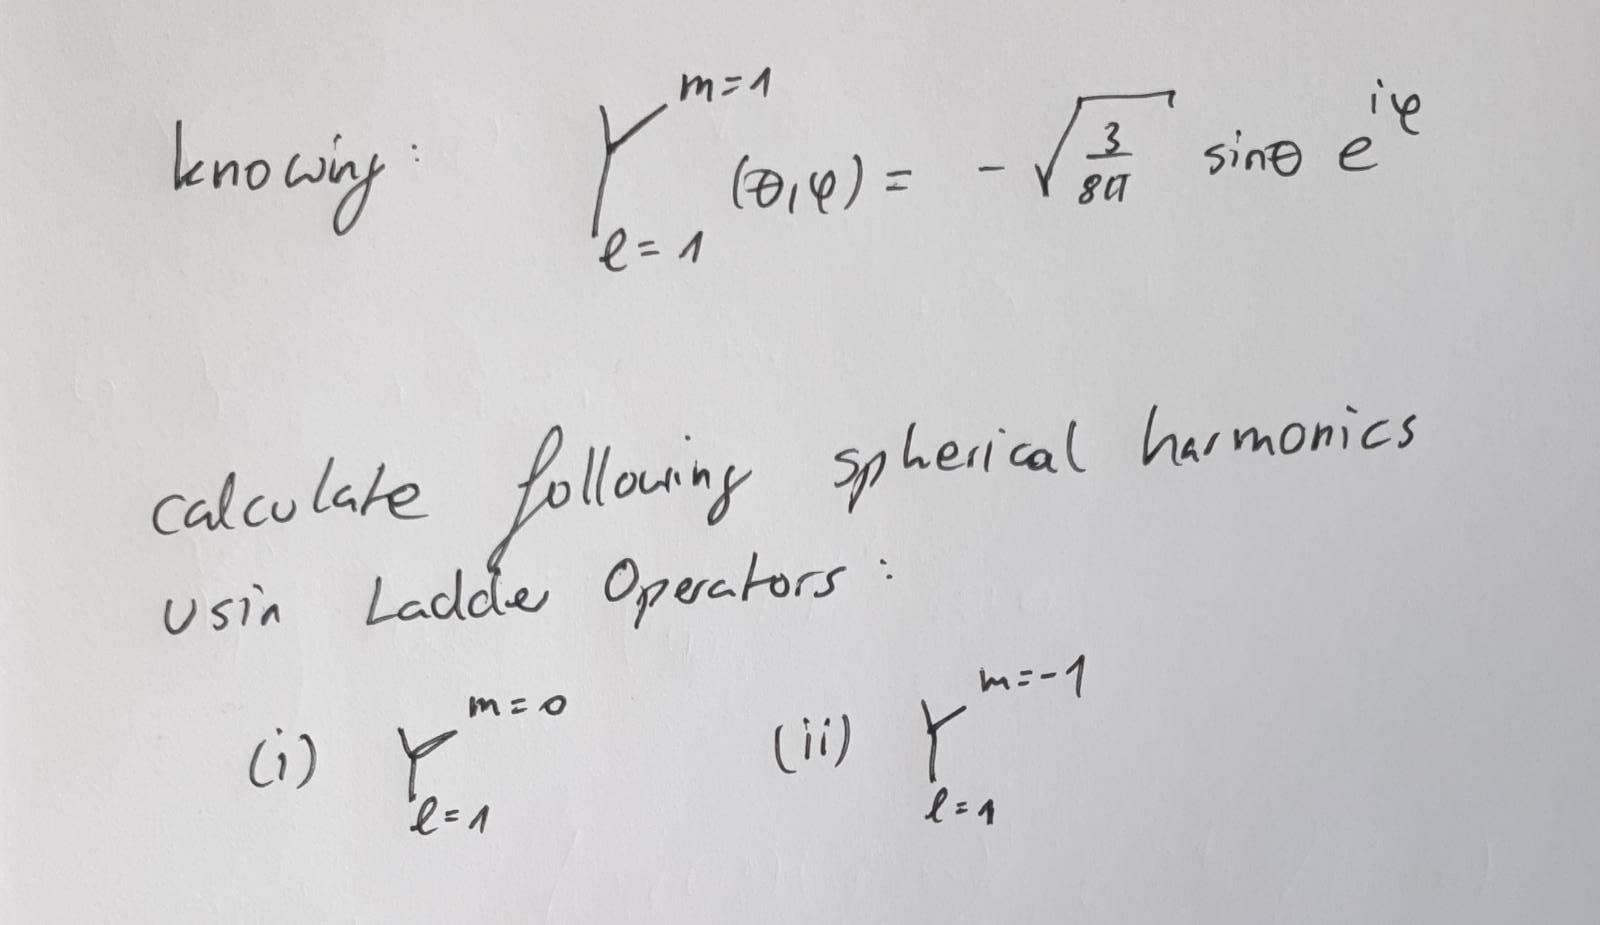 knowing: Y_{l=1}^{m=1} (θ,φ) = - √(3/8π) sinθ e^{iφ}
calculate following spherical harmonics
usin Ladder Operators:
(i) Y_{l=1}^{m=0} (ii) Y_{l=1}^{m=-1}